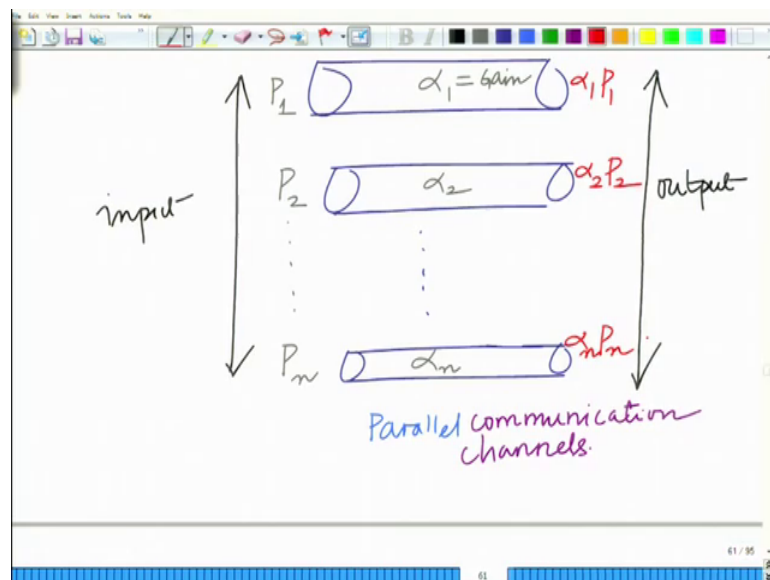 File Edit View Insert Actions Tools Help
B I
P₁ α₁ = Gain α₁P₁
P₂ α₂ α₂P₂
input output
Pₙ αₙ αₙPₙ
Parallel communication
channels.
61 / 95
61